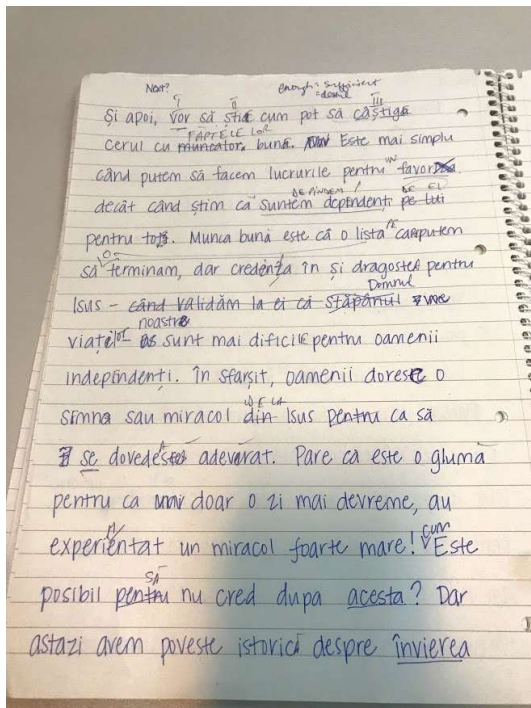 Next? enough = sufficient
= destul
I II III
Și apoi, vor să știe cum pot să câștige
FAPTELE LOR
cerul cu muncator bune. Este mai simplu
când putem să facem lucrurile pentru un favor
DEPINDEM DE EL
decât când știm că suntem dependenți pe lui
pentru tot. Munca bună este că o lista PE care putem
O
să terminam, dar credența în și dragostea pentru
Domnul
Isus – când validăm la ei că stăpânul
noastre
viațelor sunt mai dificile pentru oamenii
independenți. În sfârșit, oamenii doresc o
DE LA
semna sau miracol din Isus pentru ca să
se dovedește adevărat. Pare că este o glumă
pentru ca doar o zi mai devreme, au
experientat un miracol foarte mare! cum Este
SĂ
posibil pentru nu cred dupa acesta? Dar
astazi avem poveste istorică despre învierea